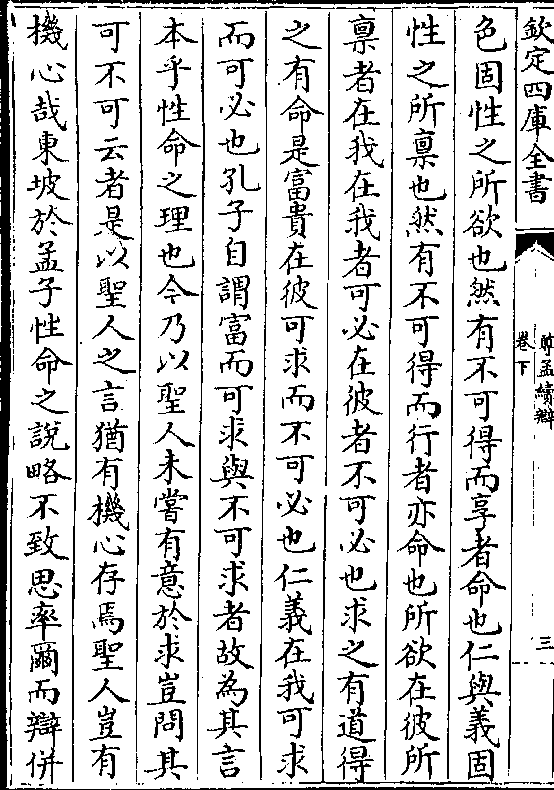 欽定四庫全書
尊孟續辯
卷下
三
色固性之所欲也然有不可得而享者命也仁與義固
性之所稟也然有不可得而行者亦命也所欲在彼所
稟者在我在我者可必在彼者不可必也求之有道得
之有命是富貴在彼可求而不可必也仁義在我可求
而可必也孔子自謂富而可求與不可求者故為其言
本乎性命之理也今乃以聖人未嘗有意於求豈問其
可不可云者是以聖人之言猶有機心存焉聖人豈有
機心哉東坡於孟子性命之說略不致思率爾而辯併